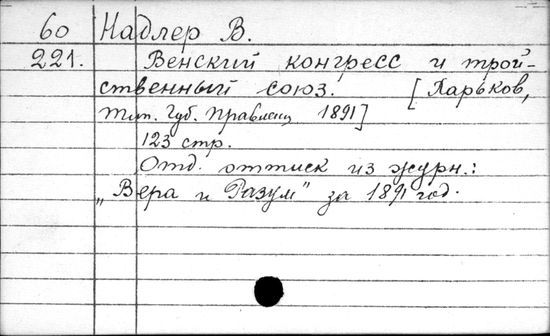 60 Надлер В.
221. Венский конгресс и трой-
ственный союз. [Харьков,
тип. Губ. Правлени, 1891]
123 стр.
Отд. оттиск из журн.:
„Вера и Разум" за 1891 год.